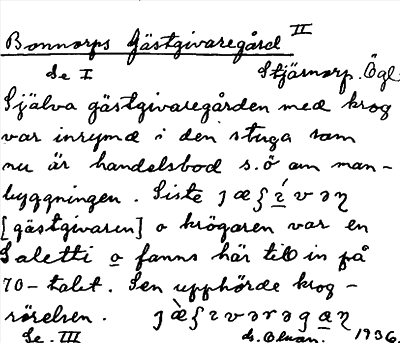 Bonnorps Gästgivaregård II
Se I Stjärnorp. Ögl.
Själva gästgivaregården med krog
var inrymd i den stuga som
nu är handelsbod s.ö om man-
byggningen. Siste
[gästgivaren] o krögaren var en
Saletti o fanns här till in på
70-talet. Sen upphörde krog-
rörelsen.
Se. III 1936.